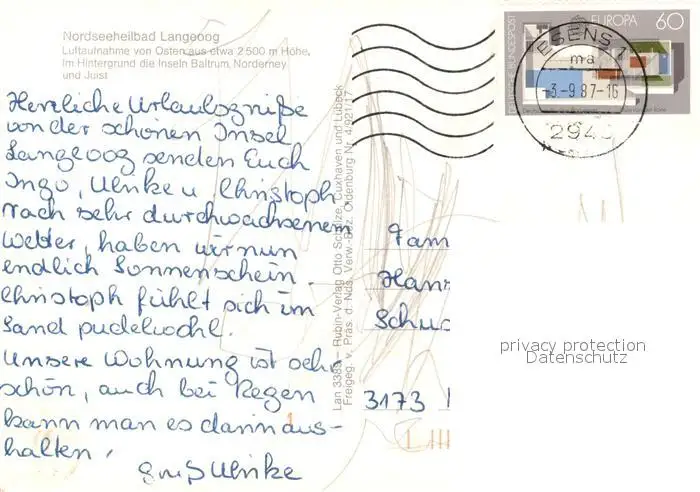 Nordseeheilbad Langeoog
Luftaufnahme von Osten aus etwa 2 500 m Höhe.
Im Hintergrund die Inseln Baltrum, Norderney
und Juist
Herzliche Urlaubsgrüße
von der schönen Insel
Langeoog senden Euch
Ingo, Ulrike u. Christoph
Nach sehr durchwachsenem
Wetter, haben wir nun
endlich Sonnenschein.
Christoph fühlt sich im
Sand pudelwohl.
Unsere Wohnung ist sehr
schön, auch bei Regen
kann man es darin aus-
halten.
Gruß Ulrike
Lan 3385 – Rubin-Verlag Otto Schulze, Cuxhaven und Lübeck
Freigeg. v. Präs. d. Nds. Verw.-Bez. Oldenburg Nr. 4/9211/7
DEUTSCHE BUNDESPOST
EUROPA 60
ESENS 1
ma
-3.-9.87-16
294
Fam
Hans
Schu
3173
privacy protection
Datenschutz